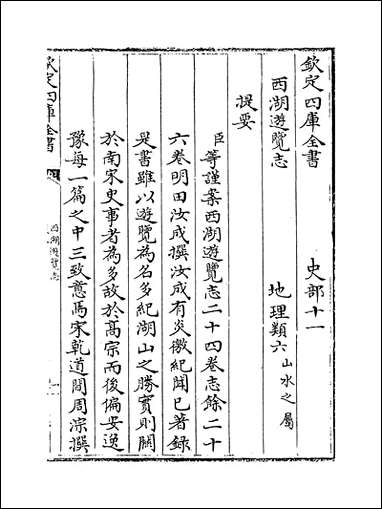 欽定四庫全書 史部十一
西湖遊覽志 地理類六山水之屬
提要
臣等謹案西湖遊覽志二十四卷志餘二十
六卷明田汝成撰汝成有炎徼紀聞已著録
是書雖以遊覽為名多紀湖山之勝實則關
於南宋史事者為多故於髙宗而後偏安逸
豫每一篇之中三致意焉宋乾道間周淙撰
欽定四庫全書
西湖遊覽志